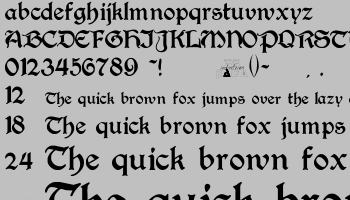 abcdefghijklmnopqrstuvwxyz
ABCDEFGHIJKLMNOPQRST
0123456789 ~! ()~ , .
12 The quick brown fox jumps over the lazy
18 The quick brown fox jumps
24 The quick brown fox
The quick brow